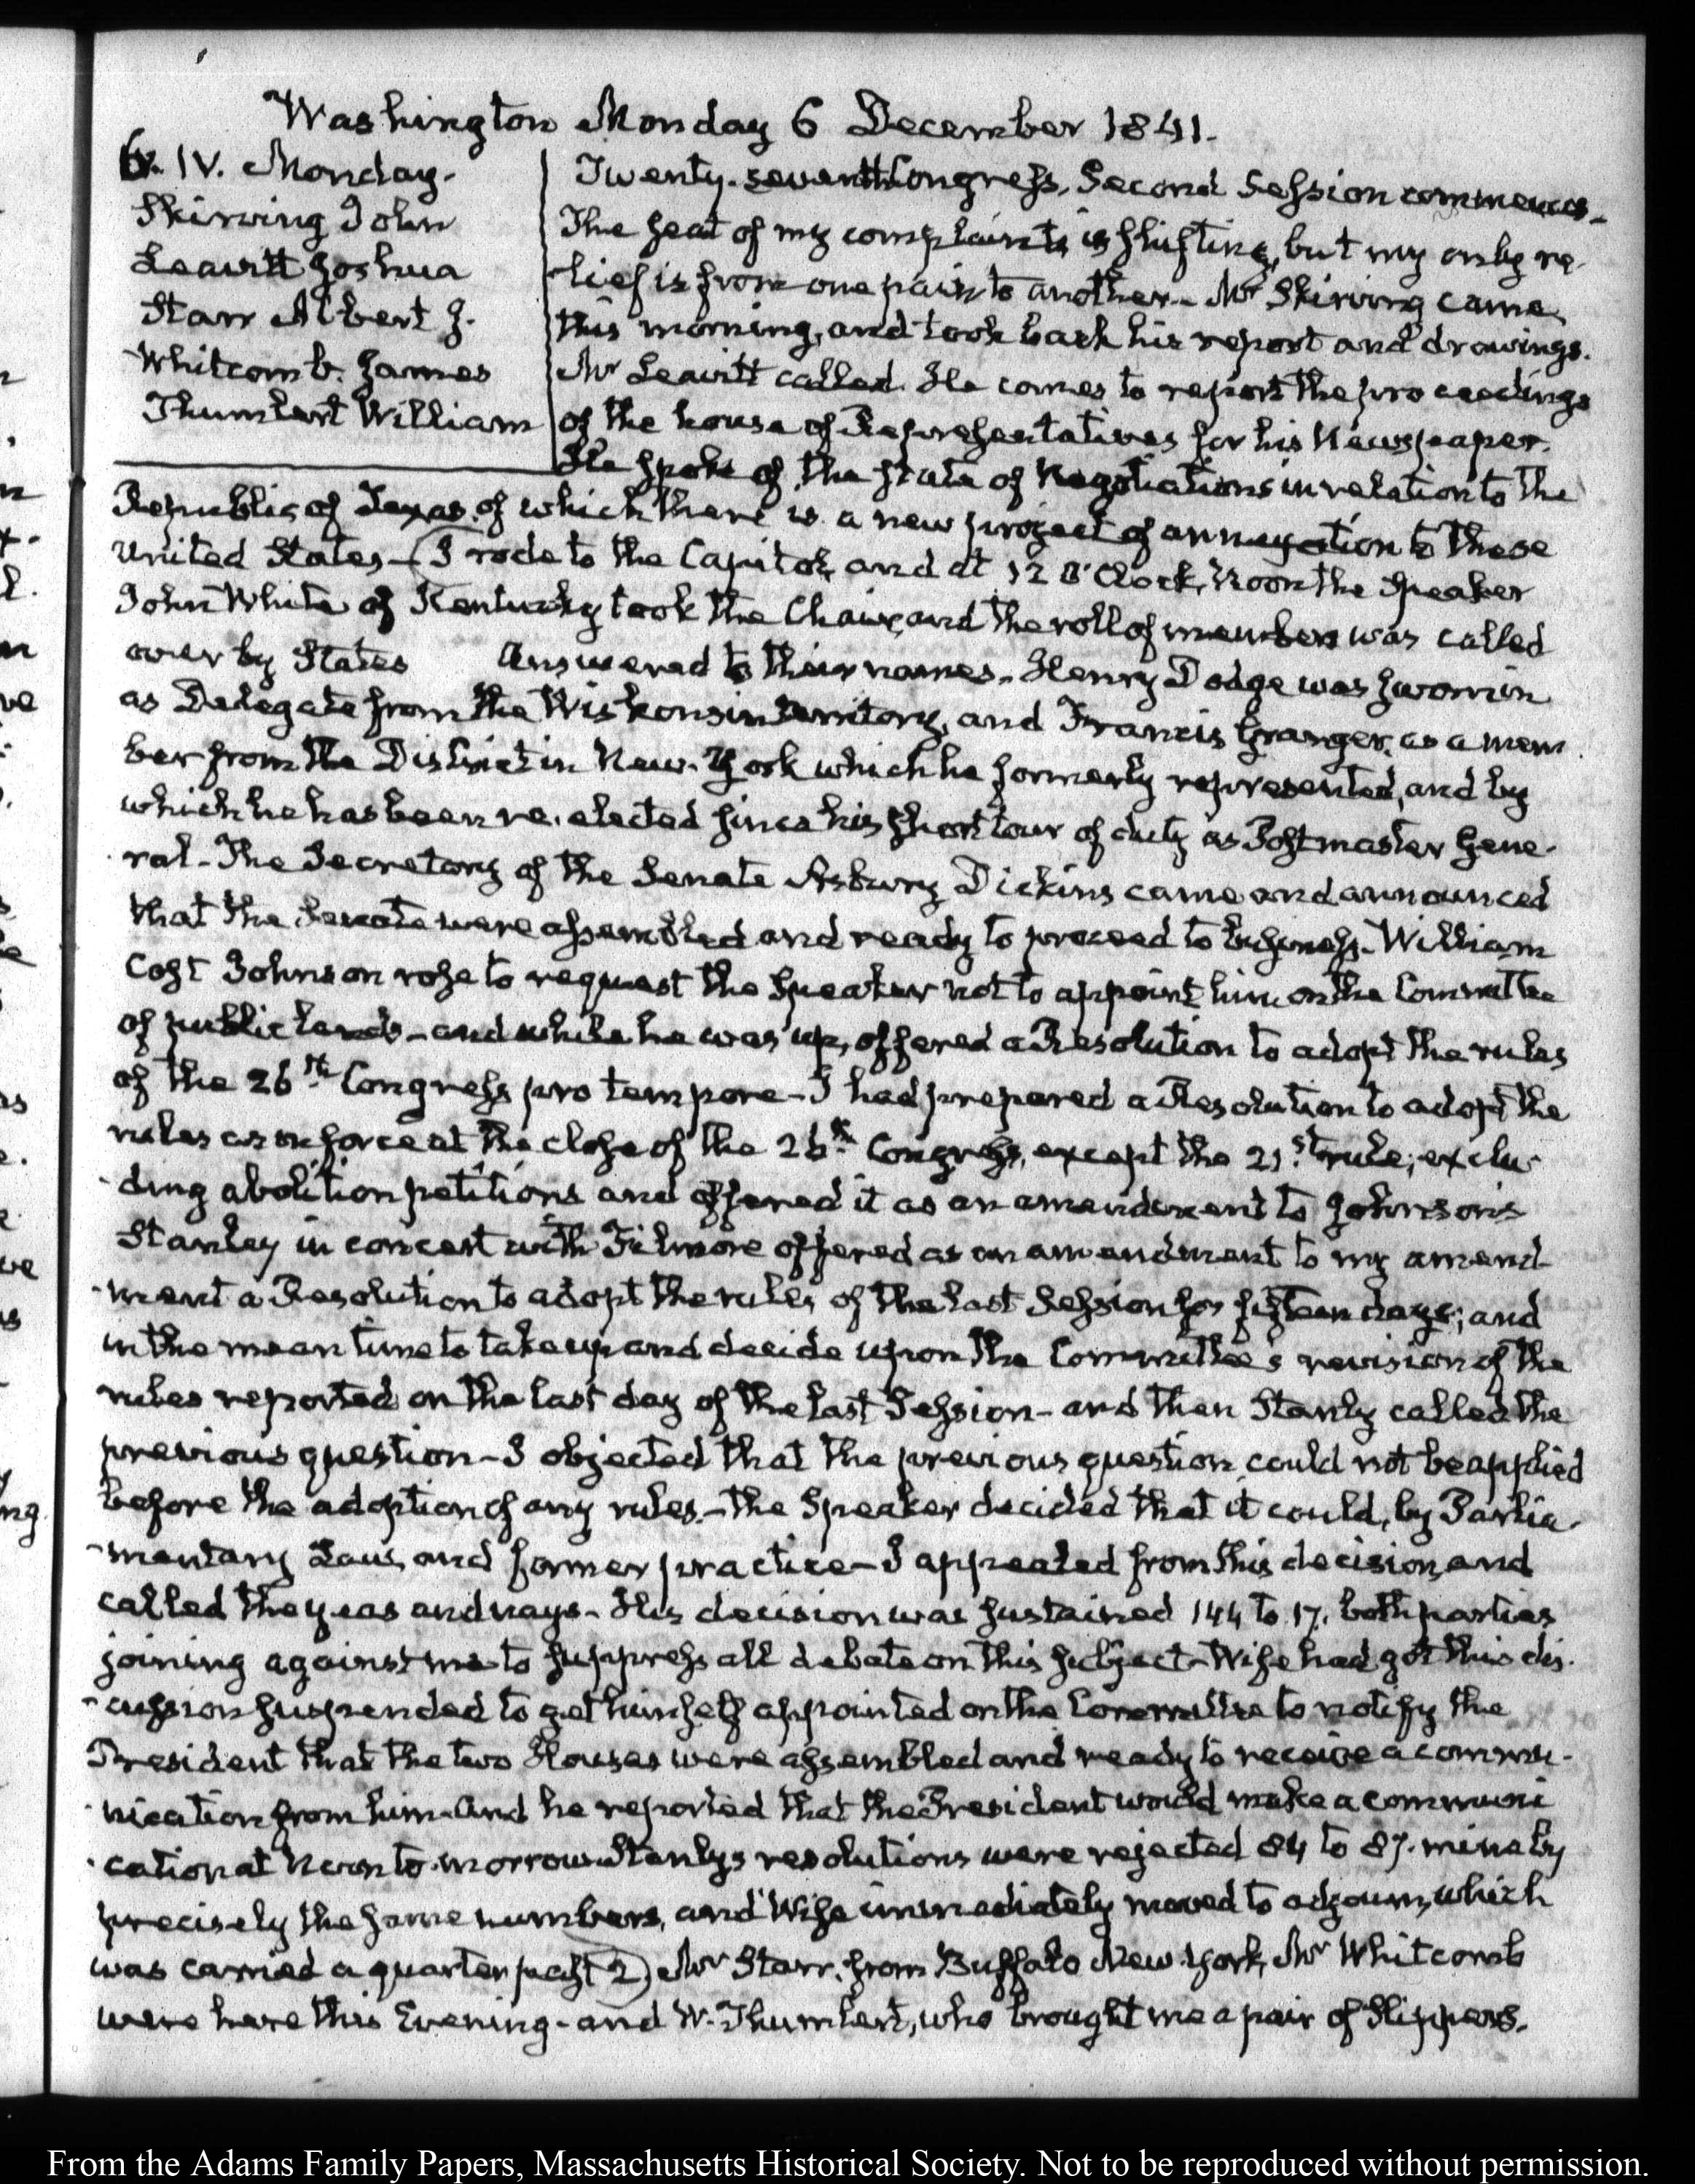 Washington Monday 6 December 1841.
6. IV. Monday.
Skirving John
Leavitt Joshua
Starr Albert J.
Whitcomb. James
Thumlert William
Twenty-seventh Congress, Second Session commences.
The seat of my complaints is shifting, but my only re-
lief is from one pain to another. Mr Skirving came
this morning, and took back his report and drawings.
Mr Leavitt called. He comes to report the proceedings
of the house of Representatives for his Newspaper.
He spoke of the state of Negotiations in relation to the
Republic of Texas, of which there is a new project of annexation to these
United States—(I rode to the Capitol, and at 12 O'Clock, Noon the Speaker
John White of Kentucky took the Chair, and the roll of members was called
over by States answered to their names. Henry Dodge was sworn in
as Delegate from the Wiskonsin territory, and Francis Granger, as a mem
ber from the District in New-York which he formerly represented, and by
which he has been re-elected since his short tour of duty as Postmaster Gene-
ral—The Secretary of the Senate Asbury Dickins came and announced
that the Senate were assembled and ready to proceed to business. William
Cost Johnson rose to request the Speaker not to appoint him on the Committee
of public lands—and while he was up, offered a Resolution to adopt the rules
of the 26th Congress pro tempore—I had prepared a Resolution to adopt the
rules as in force at the close of the 26th Congress, except the 21st rule, exclu-
ding abolition petitions and offered it as an amendment to Johnson's
Stanley in concert with Filmore offered as an amendment to my amend-
ment a Resolution to adopt the rules of the last Session for fifteen days; and
in the mean time to take up and decide upon the Committee's revision of the
rules reported on the last day of the last Session—and then Stanly called the
previous question—I objected that the previous question could not be applied
before the adoption of any rules.—the Speaker decided that it could, by Parlia-
mentary Law, and former practice—I appealed from this decision, and
called the yeas and nays—His decision was sustained 144 to 17. both parties
joining against me to suppress all debate on this subject—Wise had got this dis-
cussion suspended to get himself appointed on the Committee to notify the
President that the two Houses were assembled and ready to receive a commu-
nication from him—And he reported that the President would make a communi
cation at Noon to-morrow. Stanly's resolutions were rejected 84 to 87. mine by
precisely the same numbers, and Wise immediately moved to adjourn, which
was carried a quarter past 2) Mr Starr, from Buffalo New-York, Mr Whitcomb
were here this Evening—and W. Thumlert, who brought me a pair of Slippers.
From the Adams Family Papers, Massachusetts Historical Society. Not to be reproduced without permission.